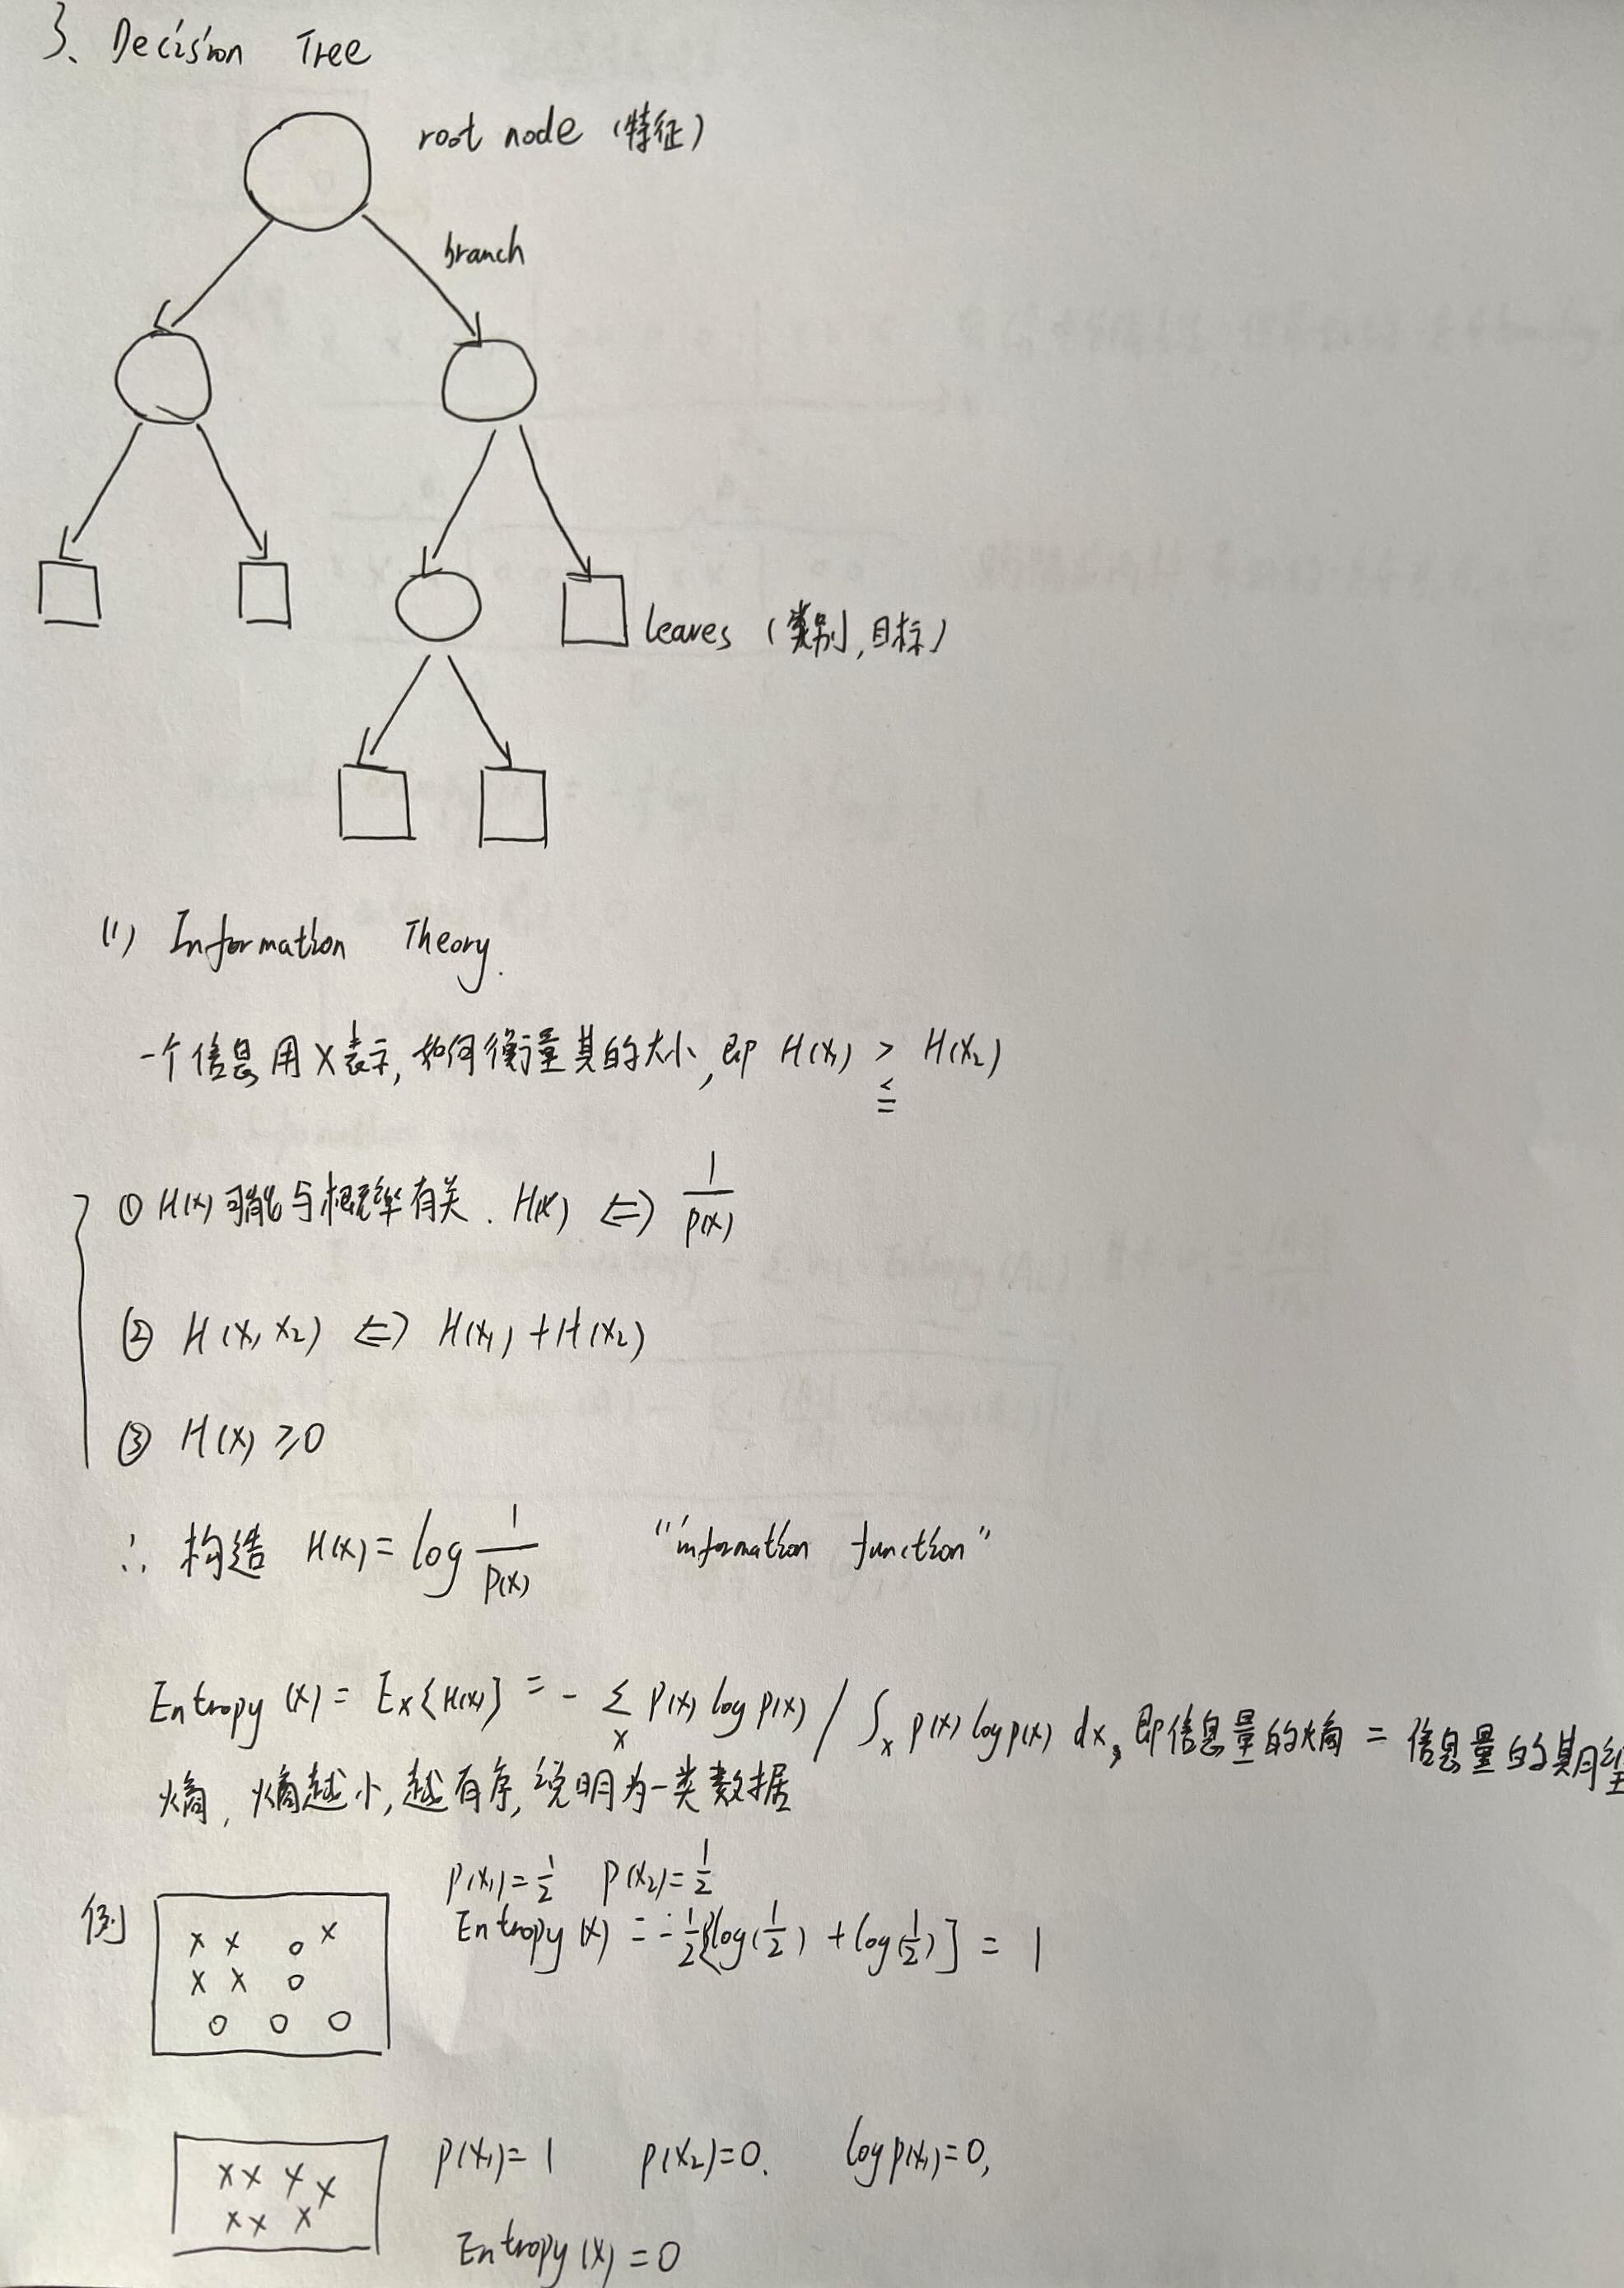 3、Decision Tree
root node (特征)
branch
leaves (类别,目标)
(1) Information Theory.
一个信息用X表示,如何衡量其的大小,即 H(X₁) > H(X₂)
≤
=
① H(X)可能与概率有关. H(X) ⇔ 1/P(X)
② H(X₁X₂) ⇔ H(X₁)+H(X₂)
③ H(X) ≥0
∴ 构造 H(X) = log 1/P(X) "information function"
Entropy (X) = Ex{H(X)} = - Σx P(X) log P(X) / ∫x P(X) log P(X) dx, 即信息量的熵 = 信息量的期望
熵, 熵越小,越有序,说明为一类数据
P(X₁)=1/2 P(X₂)=1/2
例
x x o x
Entropy (X) = -1/2{log(1/2) + log(1/2)] = 1
x x o
o o o
P(X₁)= 1 P(X₂)=0. log P(X₁)=0,
x x x x
x x x
Entropy (X) = 0